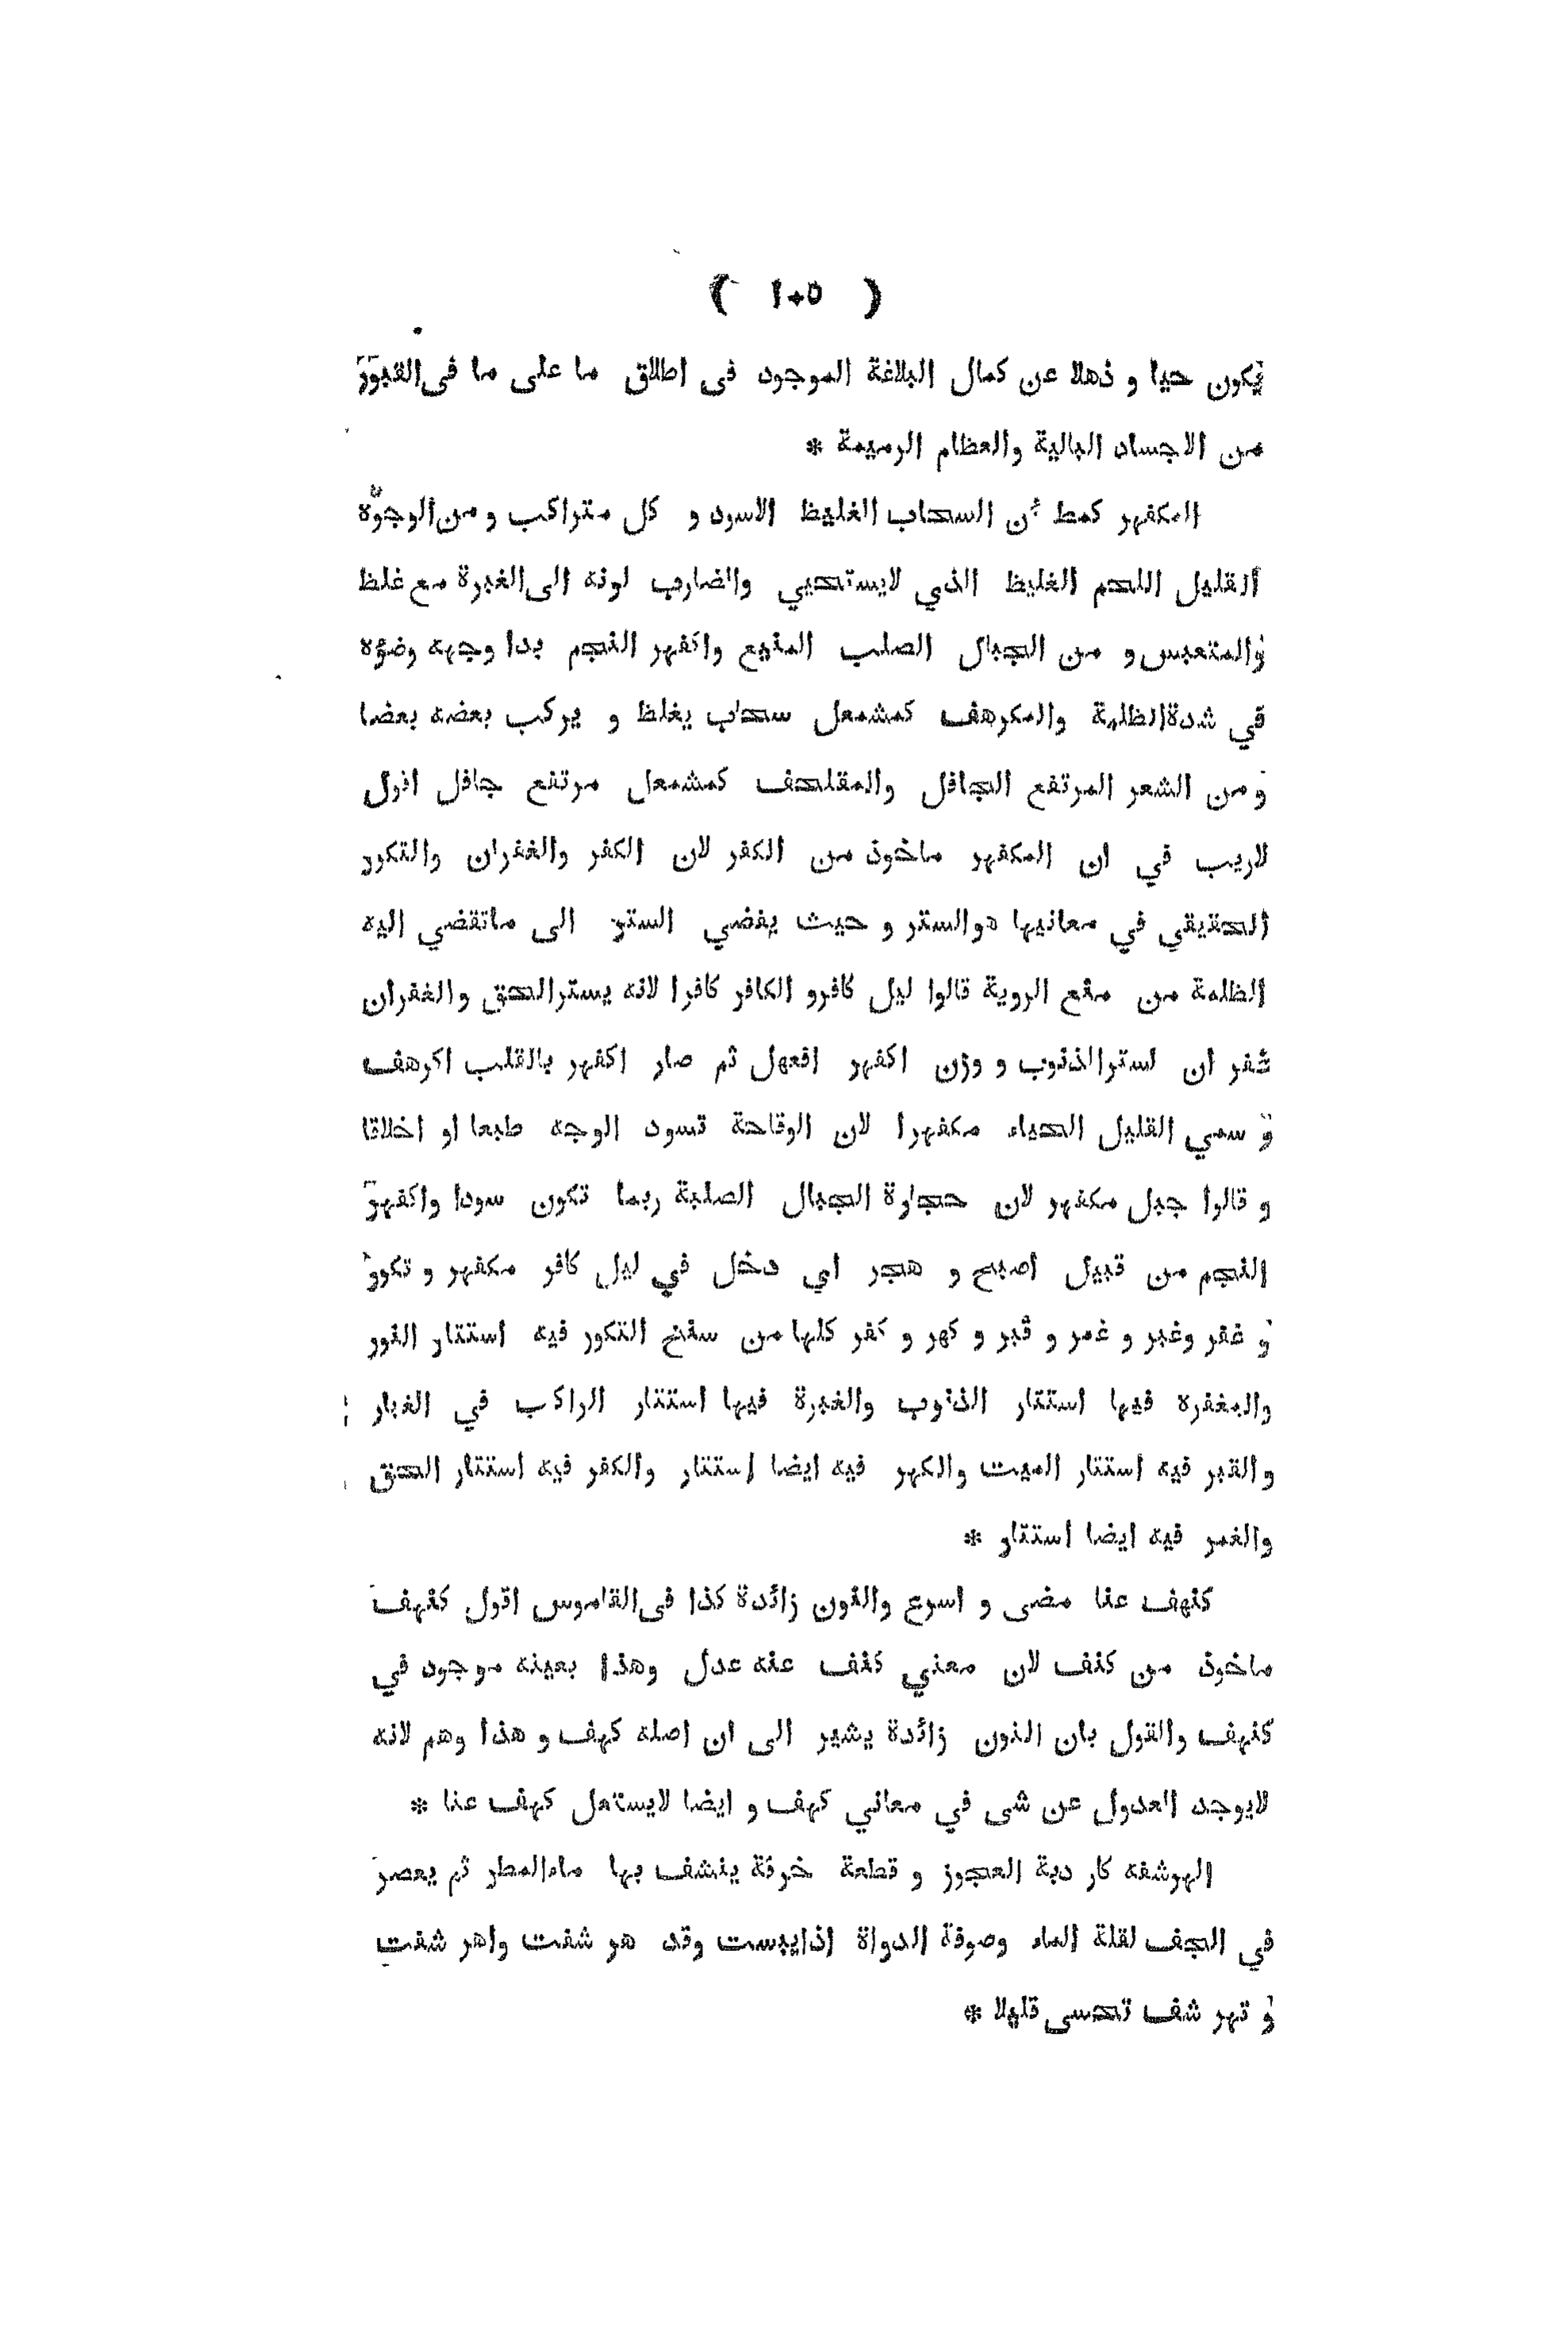 ( ١٠٥ )
يكون حيا و ذهلا عن كمال البلاغة الموجود فى اطلاق ما على ما فى القبور
من الاجساد البالية والعظام الرميمة *
المكفهر كمطمئن السحاب الغليظ الاسود و كل متراكب و من الوجوه
القليل اللحم الغليظ الذي لايستحيي والضارب لونه الى الغبرة مع غلظ
والمتعبس و من الجبال الصلب المنيع واكفهر النجم بدا وجهه وضؤه
في شدة الظلمة والمكرهف كمشمعل سحاب يغلظ و يركب بعضه بعضا
و من الشعر المرتفع الجافل والمقلحف كمشمعل مرتفع جافل اقول
لاريب في ان المكفهر ماخوذ من الكفر لان الكفر والغفران والتكور
الحقيقي في معانيها هو الستر و حيث يفضي الستر الى ماتقضي اليه
الظلمة من منع الروية قالوا ليل كافر و الكافر كافرا لانه يستر الحق والغفران
غفر ان لستر الذنوب و وزن اكفهر افعهل ثم صار اكفهر بالقلب اكرهف
و سمي القليل الحياء مكفهرا لان الوقاحة تسود الوجه طبعا او اخلاقا
و قالوا جبل مكفهر لان حجارة الجبال الصلبة ربما تكون سودا واكفهر
النجم من قبيل اصبح و هجر اي دخل في ليل كافر مكفهر و تكور
و غفر وغبر و غمر و قبر و كهر و كفر كلها من سنخ التكور فيه استتار النور
والمغفره فيها استتار الذنوب والغبرة فيها استتار الراكب في الغبار
والقبر فيه استتار الميت والكهر فيه ايضا استتار والكفر فيه استتار الحق
والغمر فيه ايضا استتار *
كنهف عنا مضى و اسرع والنون زائدة كذا فى القاموس اقول كنهف
ماخوذ من كنف لان معني كنف عنه عدل وهذا بعينه موجود في
كنهف والقول بان النون زائدة يشير الى ان اصله كهف و هذا وهم لانه
لايوجد العدول عن شى في معاني كهف و ايضا لايستعمل كهف عنا *
الهرشفه كار دبة العجوز و قطعة خرقة ينشف بها ماء المطر ثم يعصر
في الجف لقلة الماء وصوفة الدواة اذا يبست وقد هر شفت واهر شفت
و تهر شف تحسى قليلا *